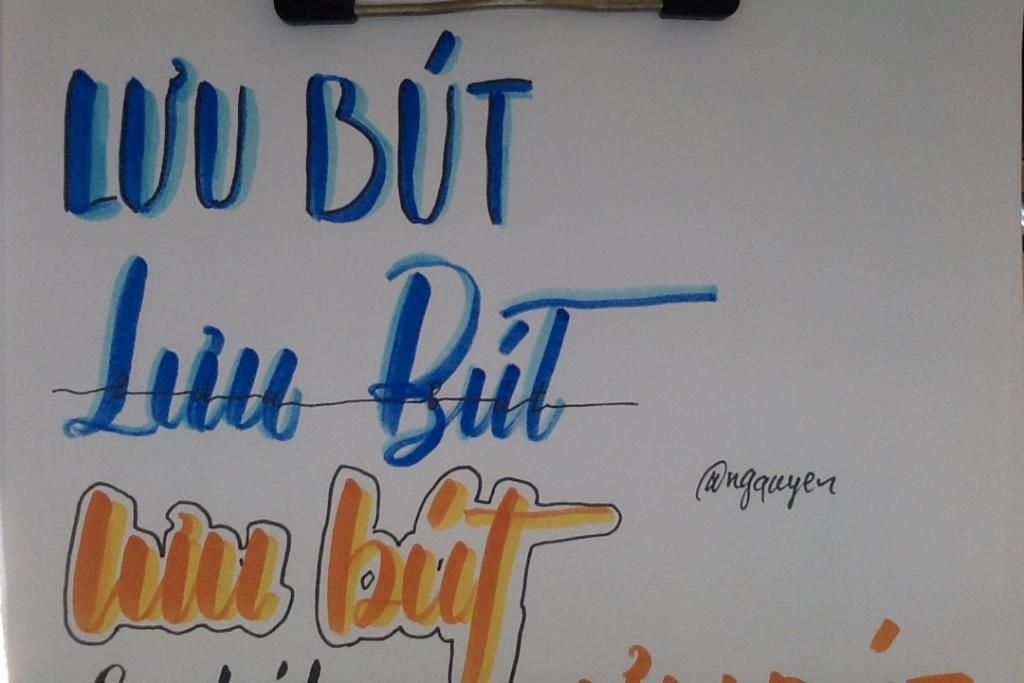 LƯU BÚT
Lưu Bút
@ngquyen
lưu bút